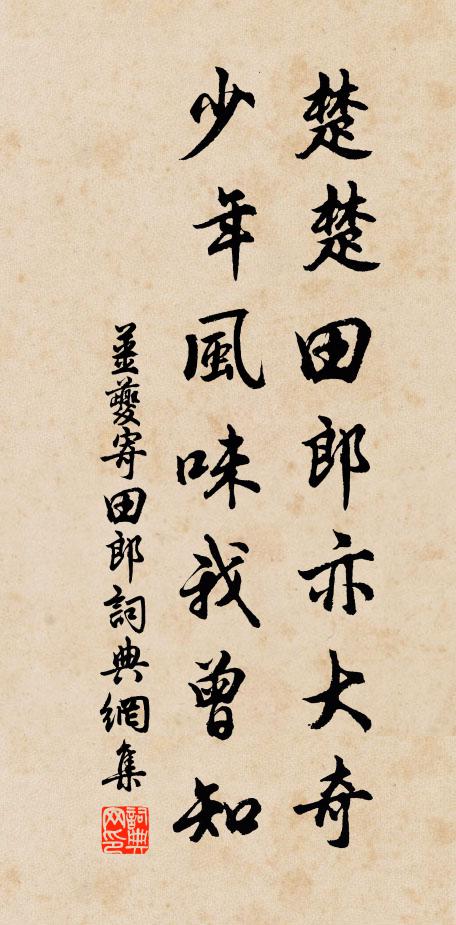 楚楚田郎亦大奇
少年風味我曾知
姜夔寄田郎詞典網集
詞典網印